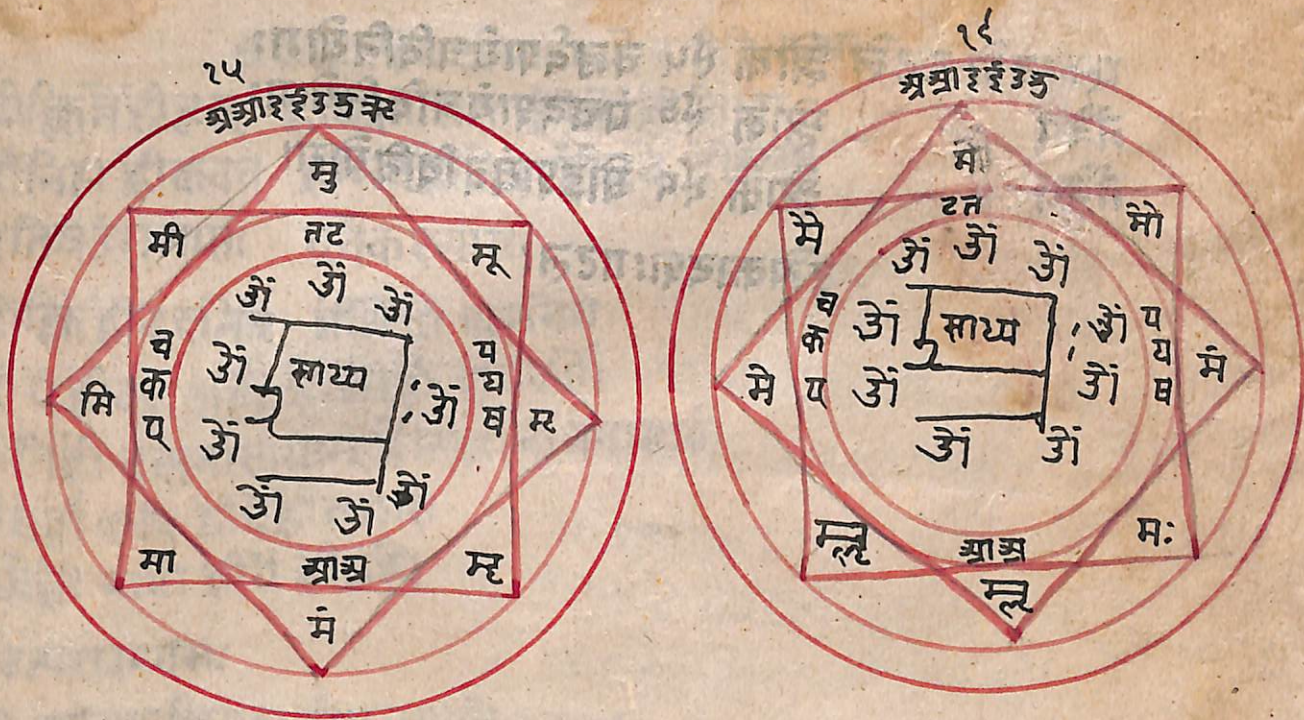 १५
अ आ इ ई उ ऊ ऋ
मु
मी
तट
मू
ओं ओं ओं
च
क
प
ओं
साध्य
ओं
य
य
ष
मि
मृ
ओं
ओं ओं ओं
मा
आ अ
मॄ
मं
१६
अ आ इ ई उ ऊ
मो
मै
टत
मौ
ओं ओं ओं
च
क
प
ओं
साध्य
ओं
प
य
ष
मे
मं
ओं
ओं
ओं ओं
आ अ
मः